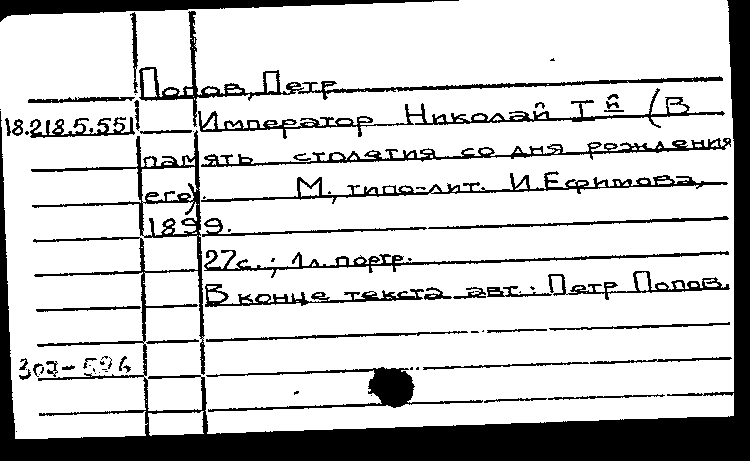 Попов, Петр
18.218.5.551 Император Николай I й (В
память столятия со дня рождения
его). М., типо-лит. И.Ефимова,
1899.
27с.; 1л. портр.
В конце текста авт.: Петр Попов.